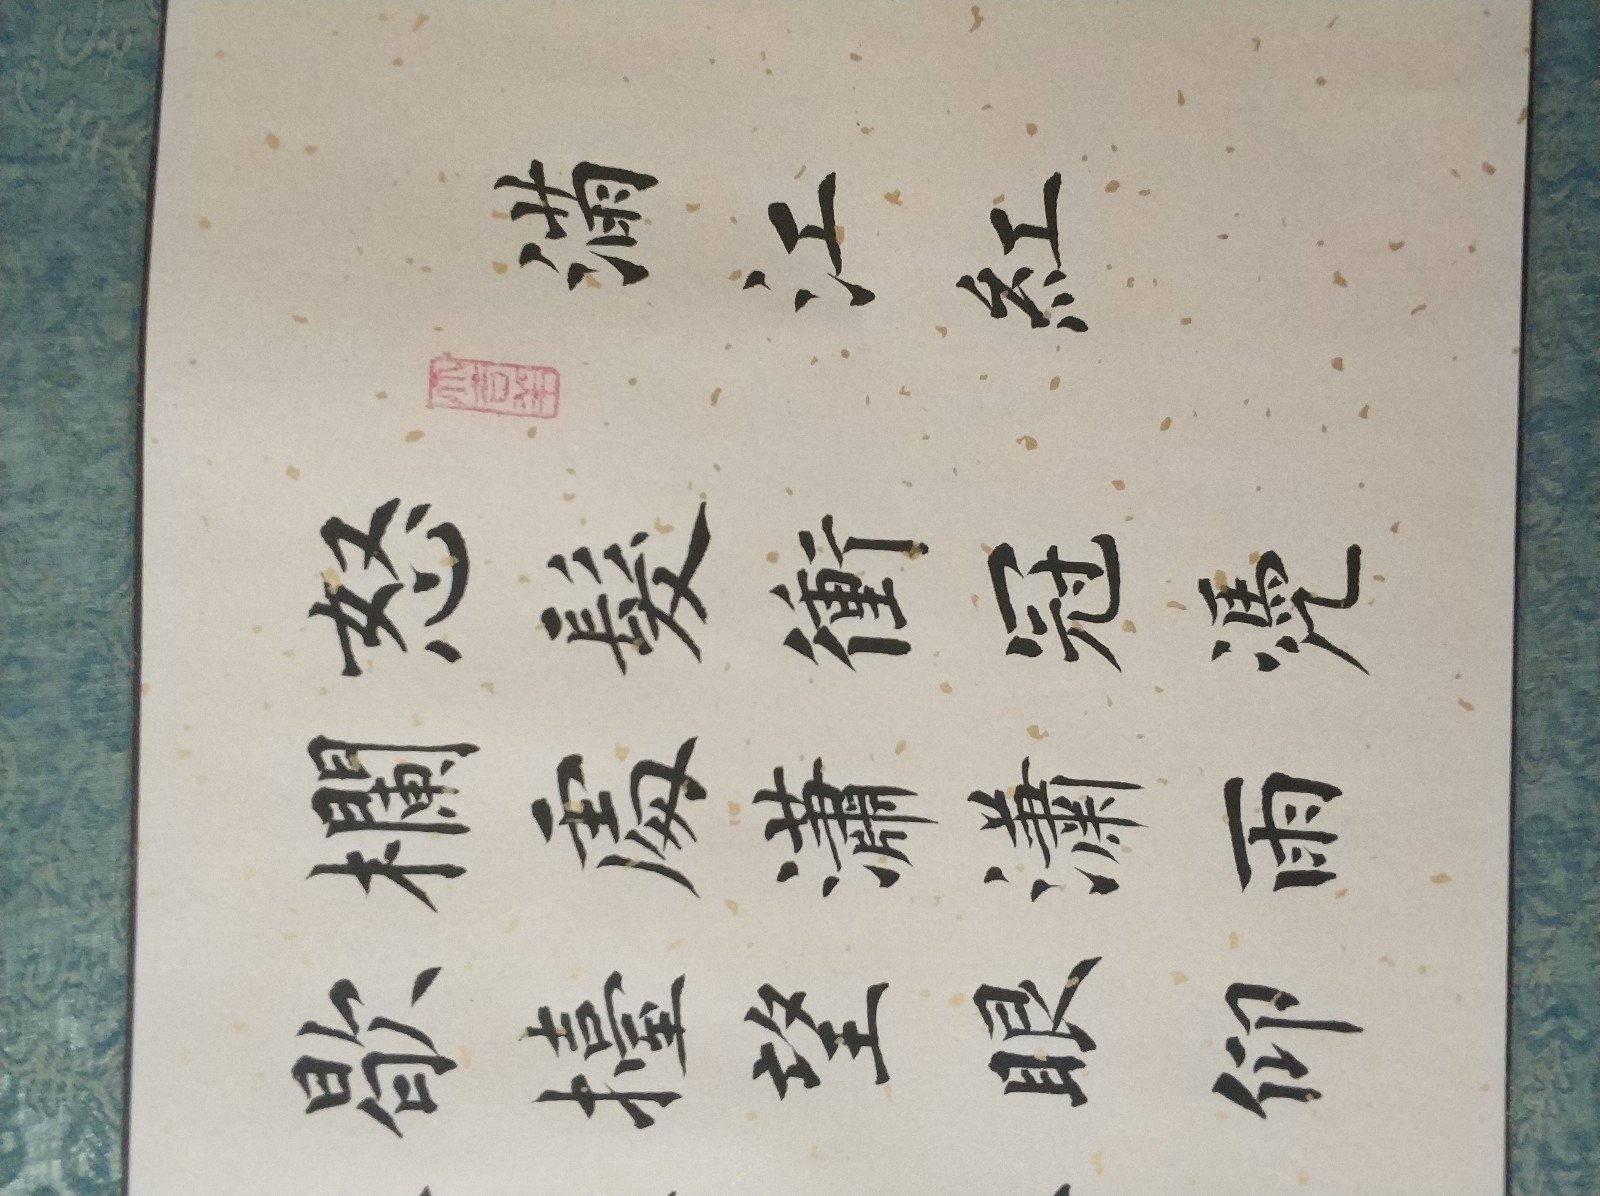 滿江紅
怒髮衝冠憑
欄處瀟瀟雨
歇擡望眼仰